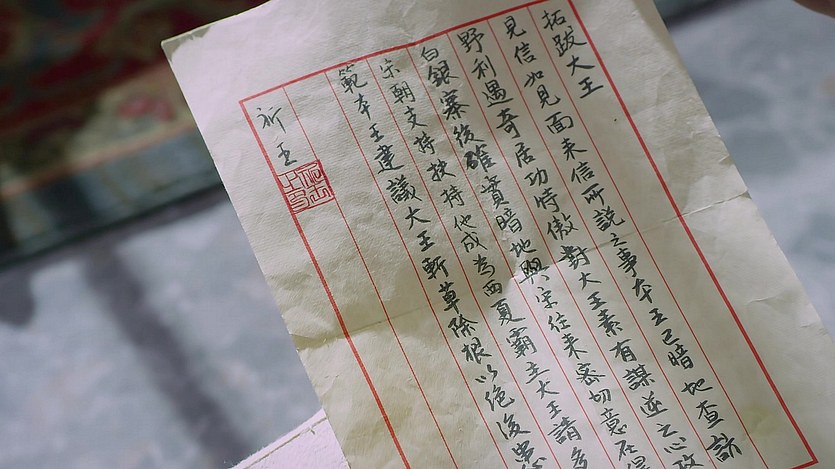 拓跋大王
見信如見面来信所説之事本王已暗地查訪
野利遇奇居功恃傲對大王素有謀逆之心攻
白銀寨後確實暗地與宋往来密切意在
宋朝支持扶持他成為西夏霸主大王請多
範本王建議大王斬草除根以絕後患
祈王